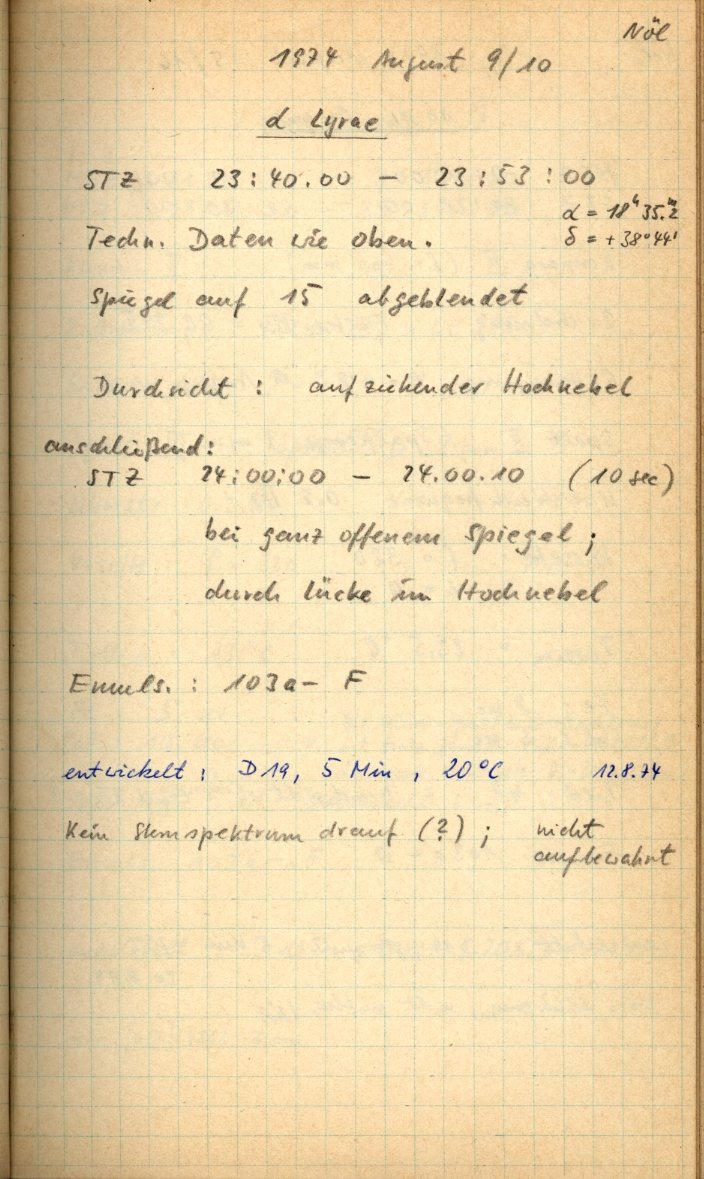 Nöl
1974 August 9/10
α Lyrae
STZ 23:40.00 – 23:53:00
α = 18ʰ 35.ᵐ2
Techn. Daten wie oben.
δ = +38°44'
Spiegel auf 15 abgeblendet
Durchsicht: aufziehender Hochnebel
anschließend:
STZ 24:00:00 – 24.00.10 (10 sec)
bei ganz offenem Spiegel;
durch Lücke im Hochnebel
Emuls.: 103a– F
entwickelt: D19, 5 Min, 20°C 12.8.74
Kein Sternspektrum drauf (?); nicht
aufbewahrt